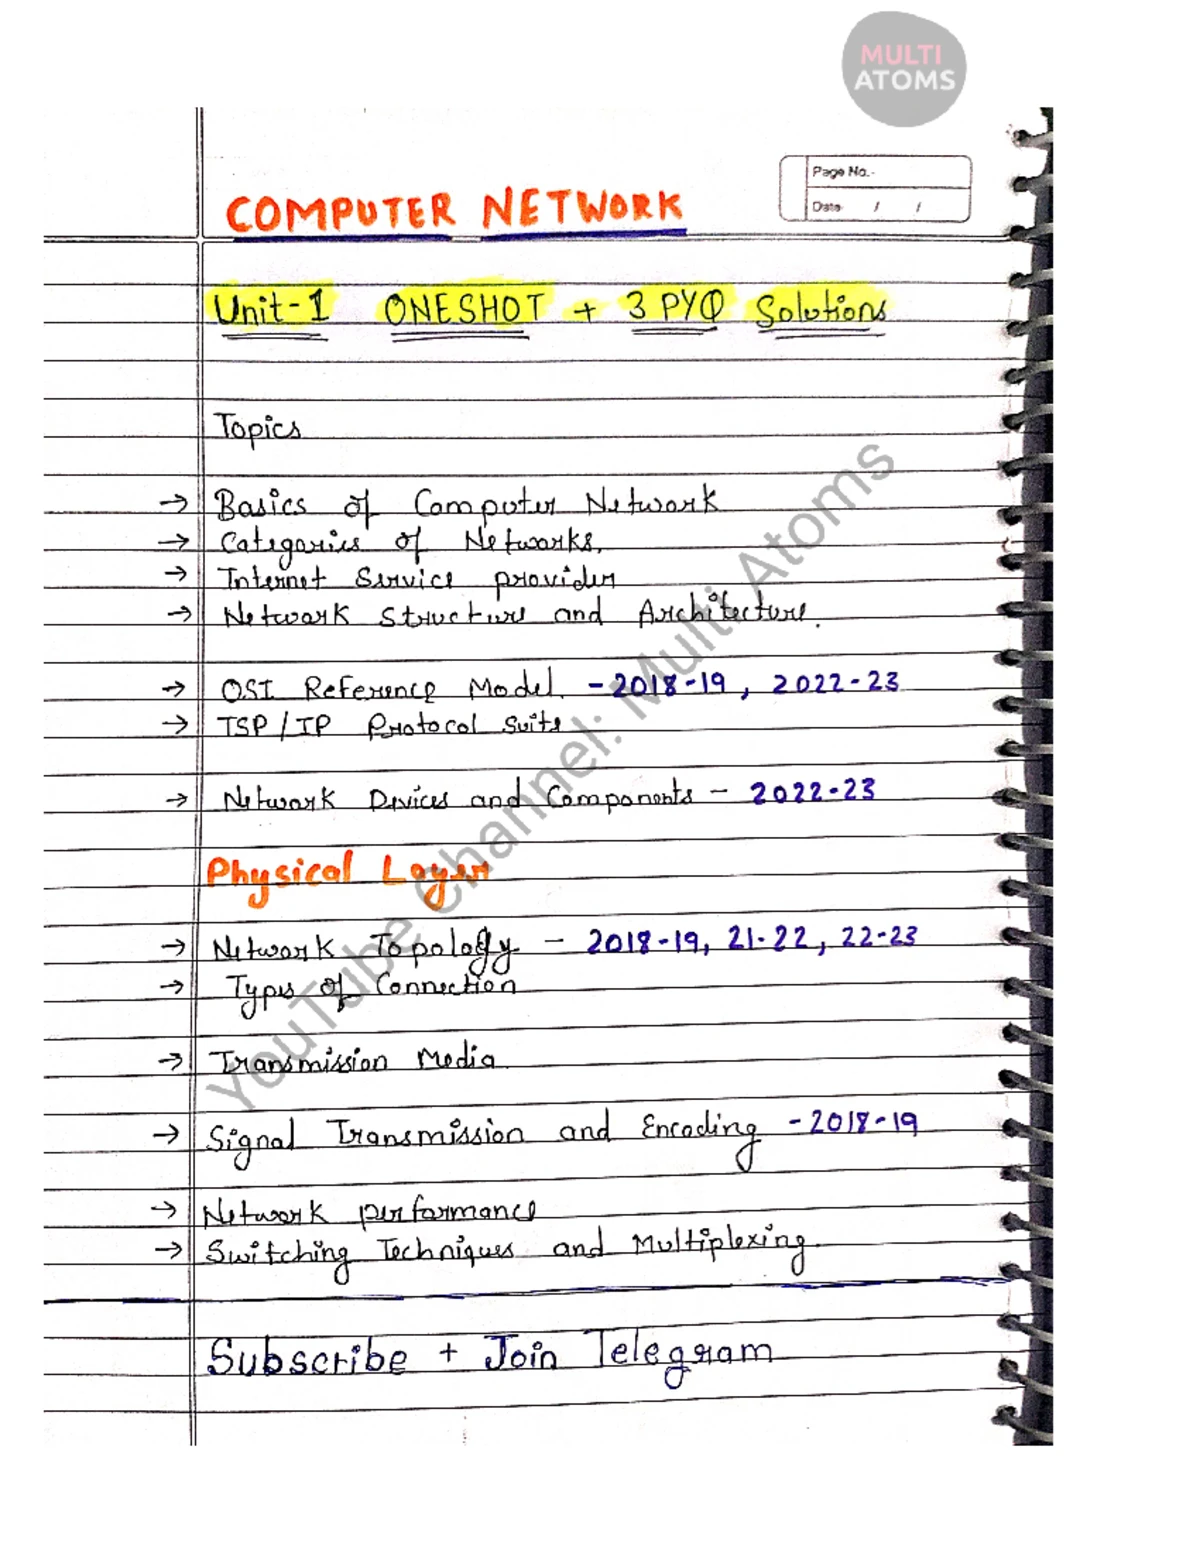 MULTI
ATOMS
Page No.-
Date / /
COMPUTER NETWORK
Unit-1 ONESHOT + 3 PYQ Solutions
Topics
→ Basics of Computer Network
→ Categories of Networks.
→ Internet Service provider
→ Network Structure and Architecture.
→ OSI Reference Model. - 2018-19, 2022-23
→ TSP/IP Protocol Suite
→ Network Devices and Components - 2022-23
Physical Layer
→ Network Topology - 2018-19, 21-22, 22-23
→ Types of Connection
→ Transmission Media
→ Signal Transmission and Encoding - 2018-19
→ Network performance
→ Switching Techniques and Multiplexing.
Subscribe + Join Telegram
YouTube Channel: Multi Atoms